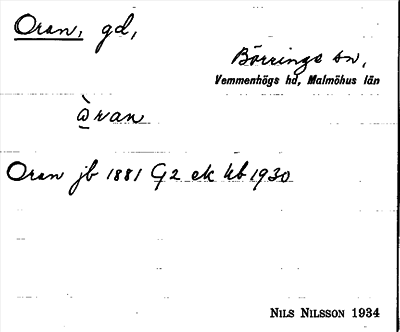 Oran, gd,
Börringe sn,
Vemmenhögs hd, Malmöhus län
òran
Oran jb 1881 G2 ek kb 1930
NILS NILSSON 1934